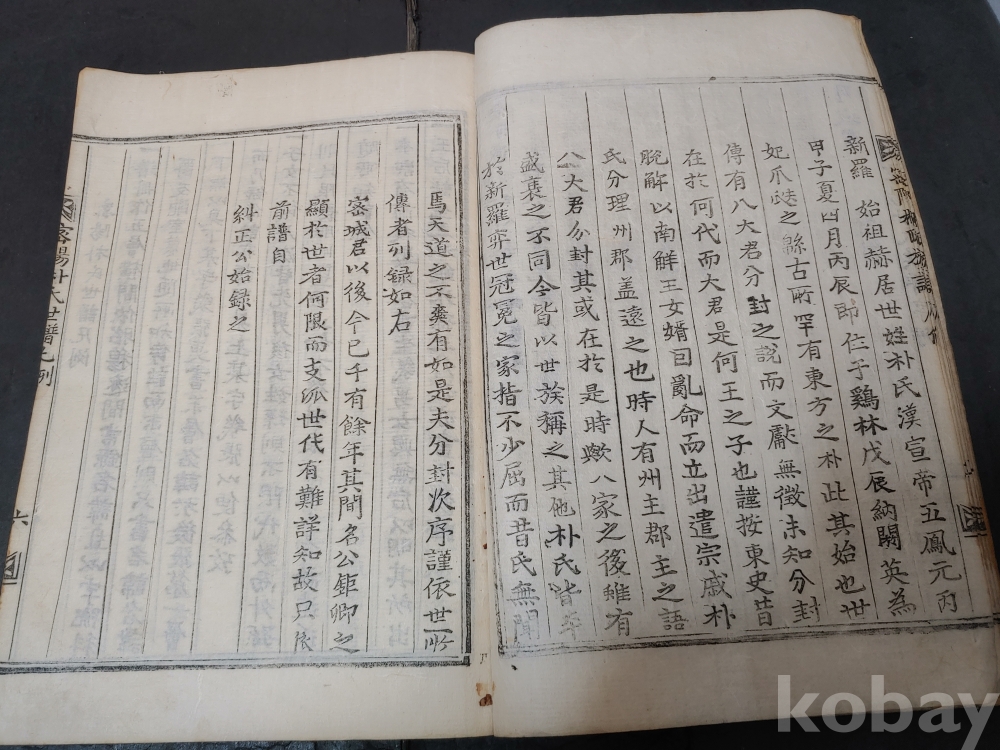 新羅 始祖赫居世姓朴氏漢宣帝五鳳元丙
甲子夏四月丙辰即位于鷄林戊辰納閼英為
妃爪㔫之縣古所罕有東方之朴此其始也世
傳有八大君分封之說而文獻無徵未知分封
在於何代而大君是何王之子也謹按東史昔
脫解以南鮮王女婿因亂命而立出遣宗戚朴
氏分理州郡盖遠之也時人有州主郡主之語
八大君分封其或在於是時歟八家之後雖有
盛衰之不同今皆以世族稱之其他朴氏皆
於新羅弈世冠冕之家指不少屈而昔氏無聞
焉天道之不爽有如是夫分封次序謹依世所
傳者列録如右
密城君以後今已千有餘年其間名公鉅卿之
顯於世者何限而支派世代有難詳知故只依
前譜自
糾正公始録之
密陽朴氏世譜凡例
六
kobay